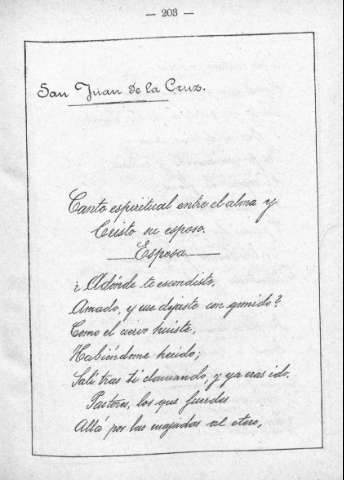 — 203 —
San Juan de la Cruz.
Canto espiritual entre el alma y
Cristo su esposo.
Esposa
¿Adónde te escondiste,
Amado, y me dejaste con gemido?
Como el ciervo huiste,
Habiéndome herido;
Salí tras ti clamando, y ya eras ido.
Pastores, los que fuerdes
Allá por las majadas al otero,